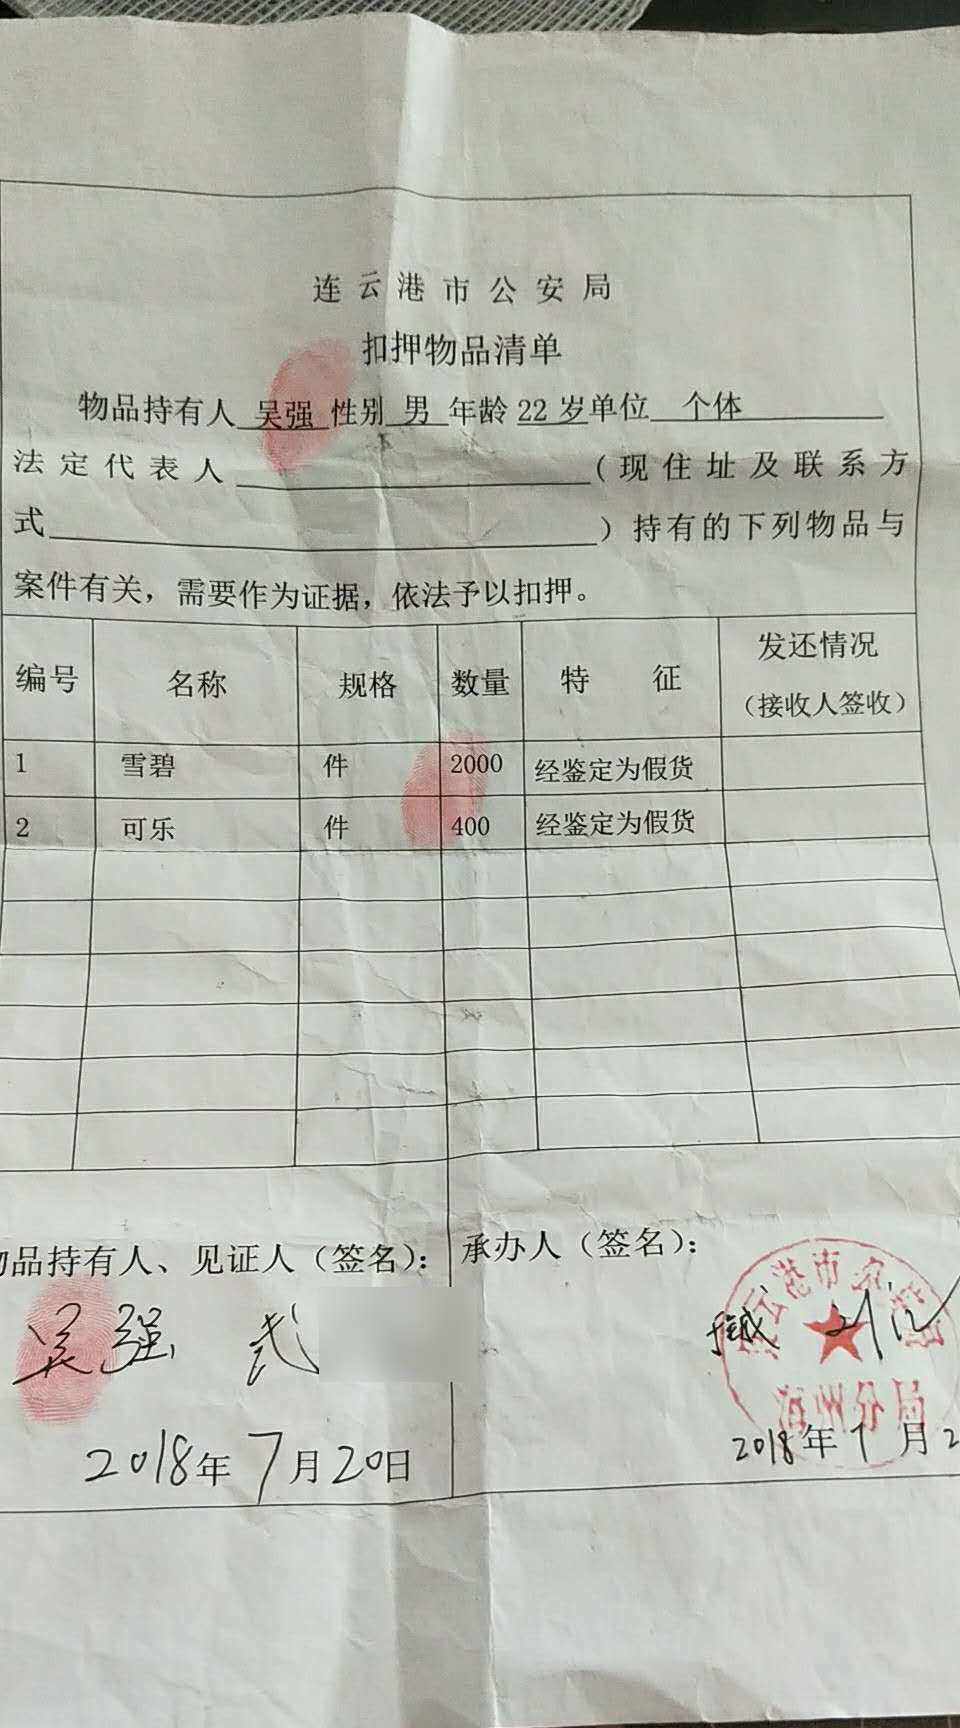 连云港市公安局
扣押物品清单
物品持有人 吴强 性别 男 年龄 22 岁单位 个体
法定代表人 (现住址及联系方
式 ) 持有的下列物品与
案件有关，需要作为证据，依法予以扣押。
编号 名称 规格 数量 特 征 发还情况
（接收人签收）
1 雪碧 件 2000 经鉴定为假货
2 可乐 件 400 经鉴定为假货
品持有人、见证人（签名）： 承办人（签名）：
吴强 武
连云港市公安局
海州分局
2018年7月20日 2018年7月2